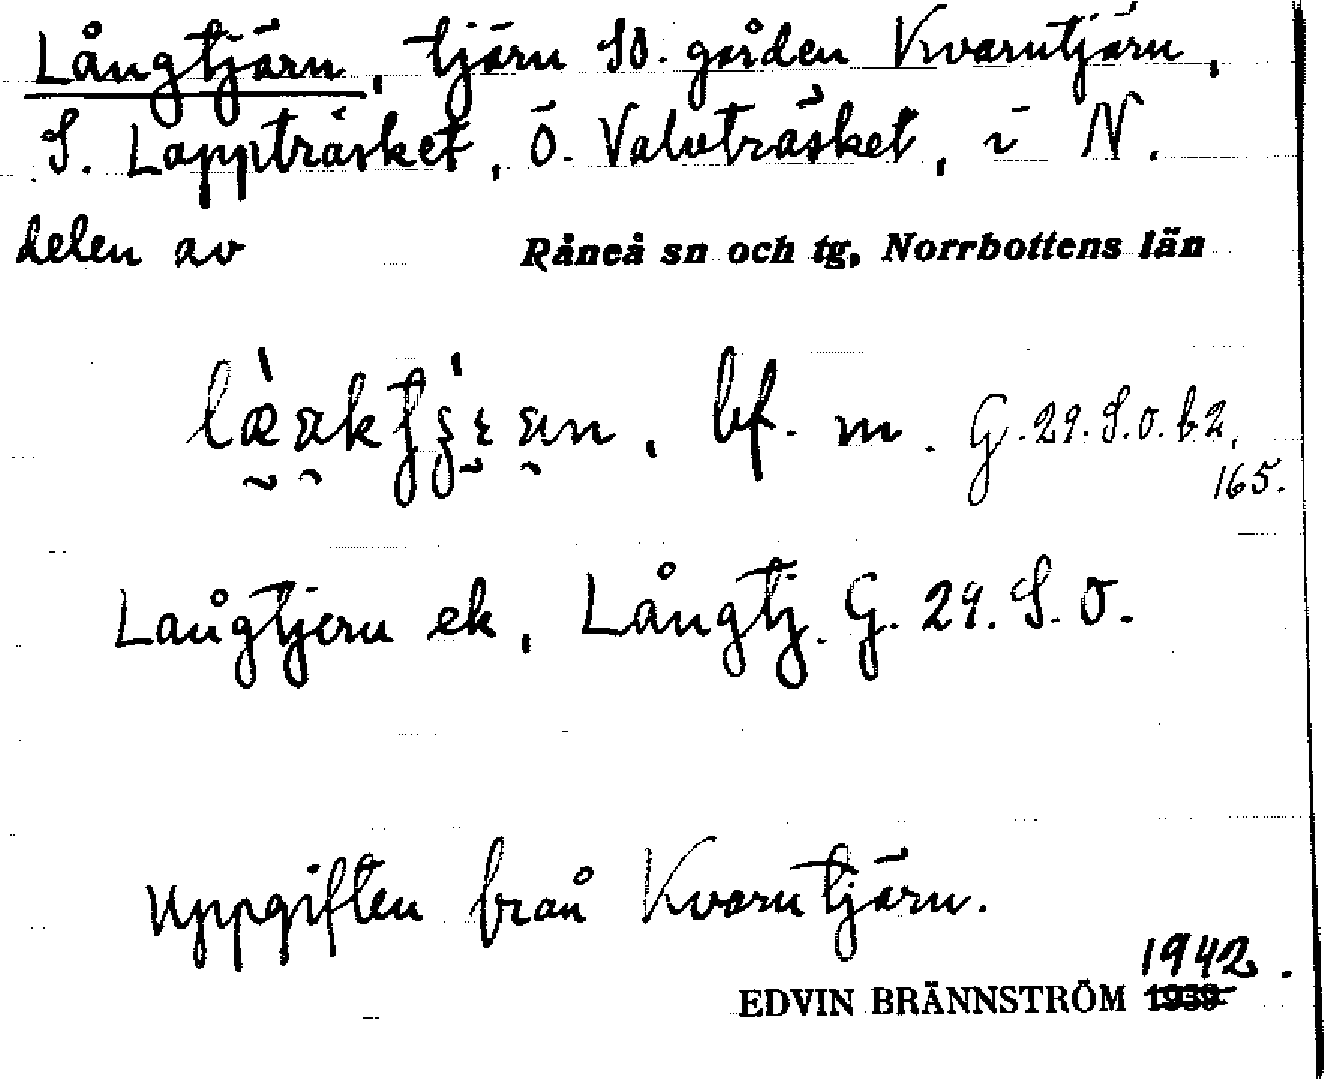 Långtjärn, tjärn SO. gården Kvarntjärn,
S. Lappträsket, Ö. Valvträsket, i N.
delen av Råneå sn och tg, Norrbottens län
bf. m. G. 29. S. o. b. 2,
165.
Långtjern ek, Långtj. G. 29. S. O.
Uppgiften från Kvarntjärn.
1942.
EDVIN BRÄNNSTRÖM 1939